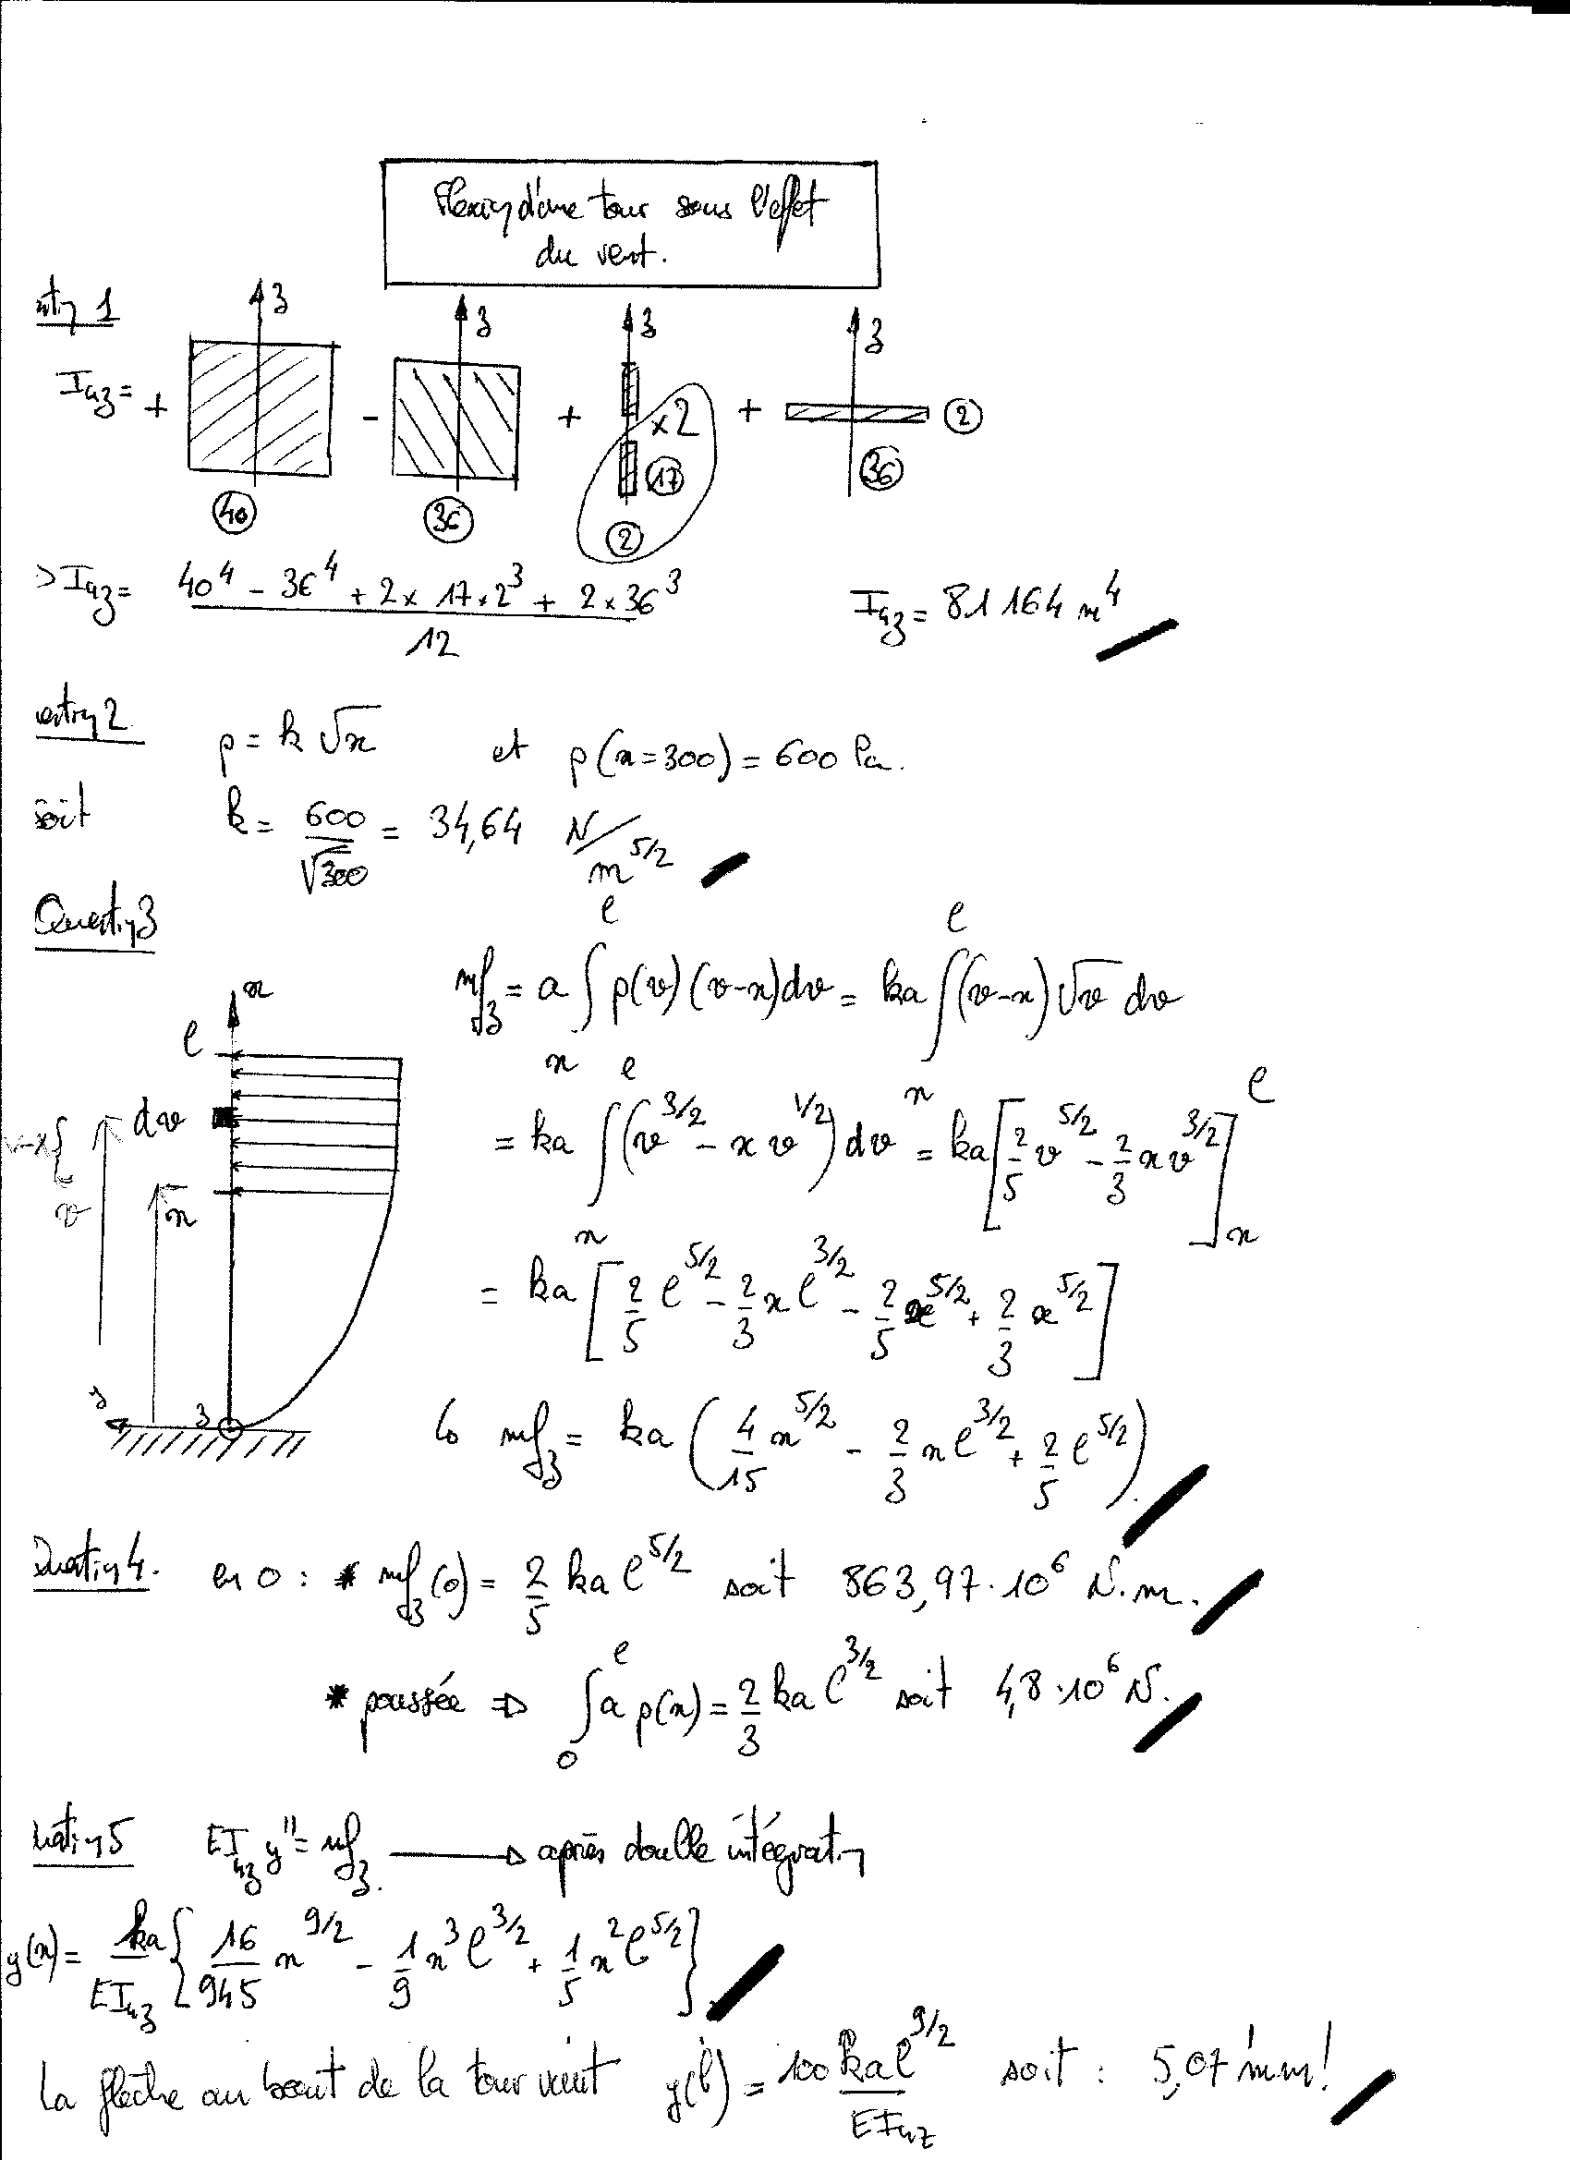 Flexion d'une tour sous l'effet
du vent.
stion 1
z z z z
I_uz = + - + ×2 + ②
⑰ ㊱
㊵ ㊱ ②
> I_uz = (40^4 - 36^4 + 2 × 17 × 2^3 + 2 × 36^3) / 12 I_uz = 81 164 m^4
estion 2 p = k √x et p(x=300) = 600 Pa.
soit k = 600/√300 = 34,64 N/m^5/2
Question 3
mf_z = a ∫_x^l p(v)(v-x)dv = ka ∫_x^l (v-x) √v dv
= ka ∫_x^l (v^3/2 - x v^1/2) dv = ka [2/5 v^5/2 - 2/3 x v^3/2]_x^l
= ka [2/5 l^5/2 - 2/3 x l^3/2 - 2/5 x^5/2 + 2/3 x^5/2]
mf_z = ka (4/15 x^5/2 - 2/3 x l^3/2 + 2/5 l^5/2).
x
l
dv
v-x {
v
x
y z
Question 4. en 0 : * mf_z(0) = 2/5 ka l^5/2 soit 863,97·10^6 N.m.
* poussée ⇒ ∫_0^l a p(x) = 2/3 ka l^3/2 soit 4,8·10^6 N.
uestion 5 EI_uz y'' = mf_z. → après double intégration
y(x) = ka/EI_uz {16/945 x^9/2 - 1/9 x^3 l^3/2 + 1/5 x^2 l^5/2}.
La flèche au bout de la tour vaut y(l) = 100 ka l^9/2 / EI_uz soit : 5,07 mm!